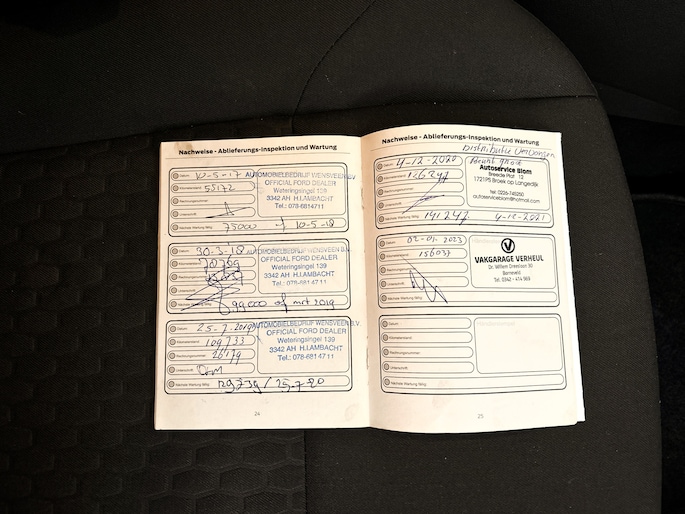 Nachweise - Ablieferungs-Inspektion und Wartung
Datum 10-5-17
Kilometerstand 55172
Rechnungsnummer
Unterschrift
Nächste Wartung fällig 75000 of 10-5-18
AUTOMOBIELBEDRIJF WENSVEEN B.V.
OFFICIAL FORD DEALER
Weteringsingel 139
3342 AH H.I.AMBACHT
Tel.: 078-6814711
Datum 30-3-18
Kilometerstand
Rechnungsnummer
Unterschrift
Nächste Wartung fällig 99.000 of mrt 2019
AUTOMOBIELBEDRIJF WENSVEEN B.V.
OFFICIAL FORD DEALER
Weteringsingel 139
3342 AH H.I.AMBACHT
Tel.: 078-6814711
Datum 25-7-2019
Kilometerstand 109733
Rechnungsnummer 26179
Unterschrift
Nächste Wartung fällig 129739 / 25-7-20
AUTOMOBIELBEDRIJF WENSVEEN B.V.
OFFICIAL FORD DEALER
Weteringsingel 139
3342 AH H.I.AMBACHT
Tel.: 078-6814711
24
Nachweise - Ablieferungs-Inspektion und Wartung
Distributie Vervangen
Datum 4-12-2020
Kilometerstand 126247
Rechnungsnummer
Unterschrift
Nächste Wartung fällig 141247 4-12-2021
Autoservice Blom
Breede Plat 12
1721 Broek op Langedijk
tel.
autoserviceblom@hotmail.com
Datum 02-01-2023
Kilometerstand 156037
Rechnungsnummer
Unterschrift
Nächste Wartung fällig
VAKGARAGE VERHEUL
Dr. Willem Dreeslaan
Barneveld
Tel. 0342 - 414 969
Datum
Kilometerstand
Rechnungsnummer
Unterschrift
Nächste Wartung fällig
25